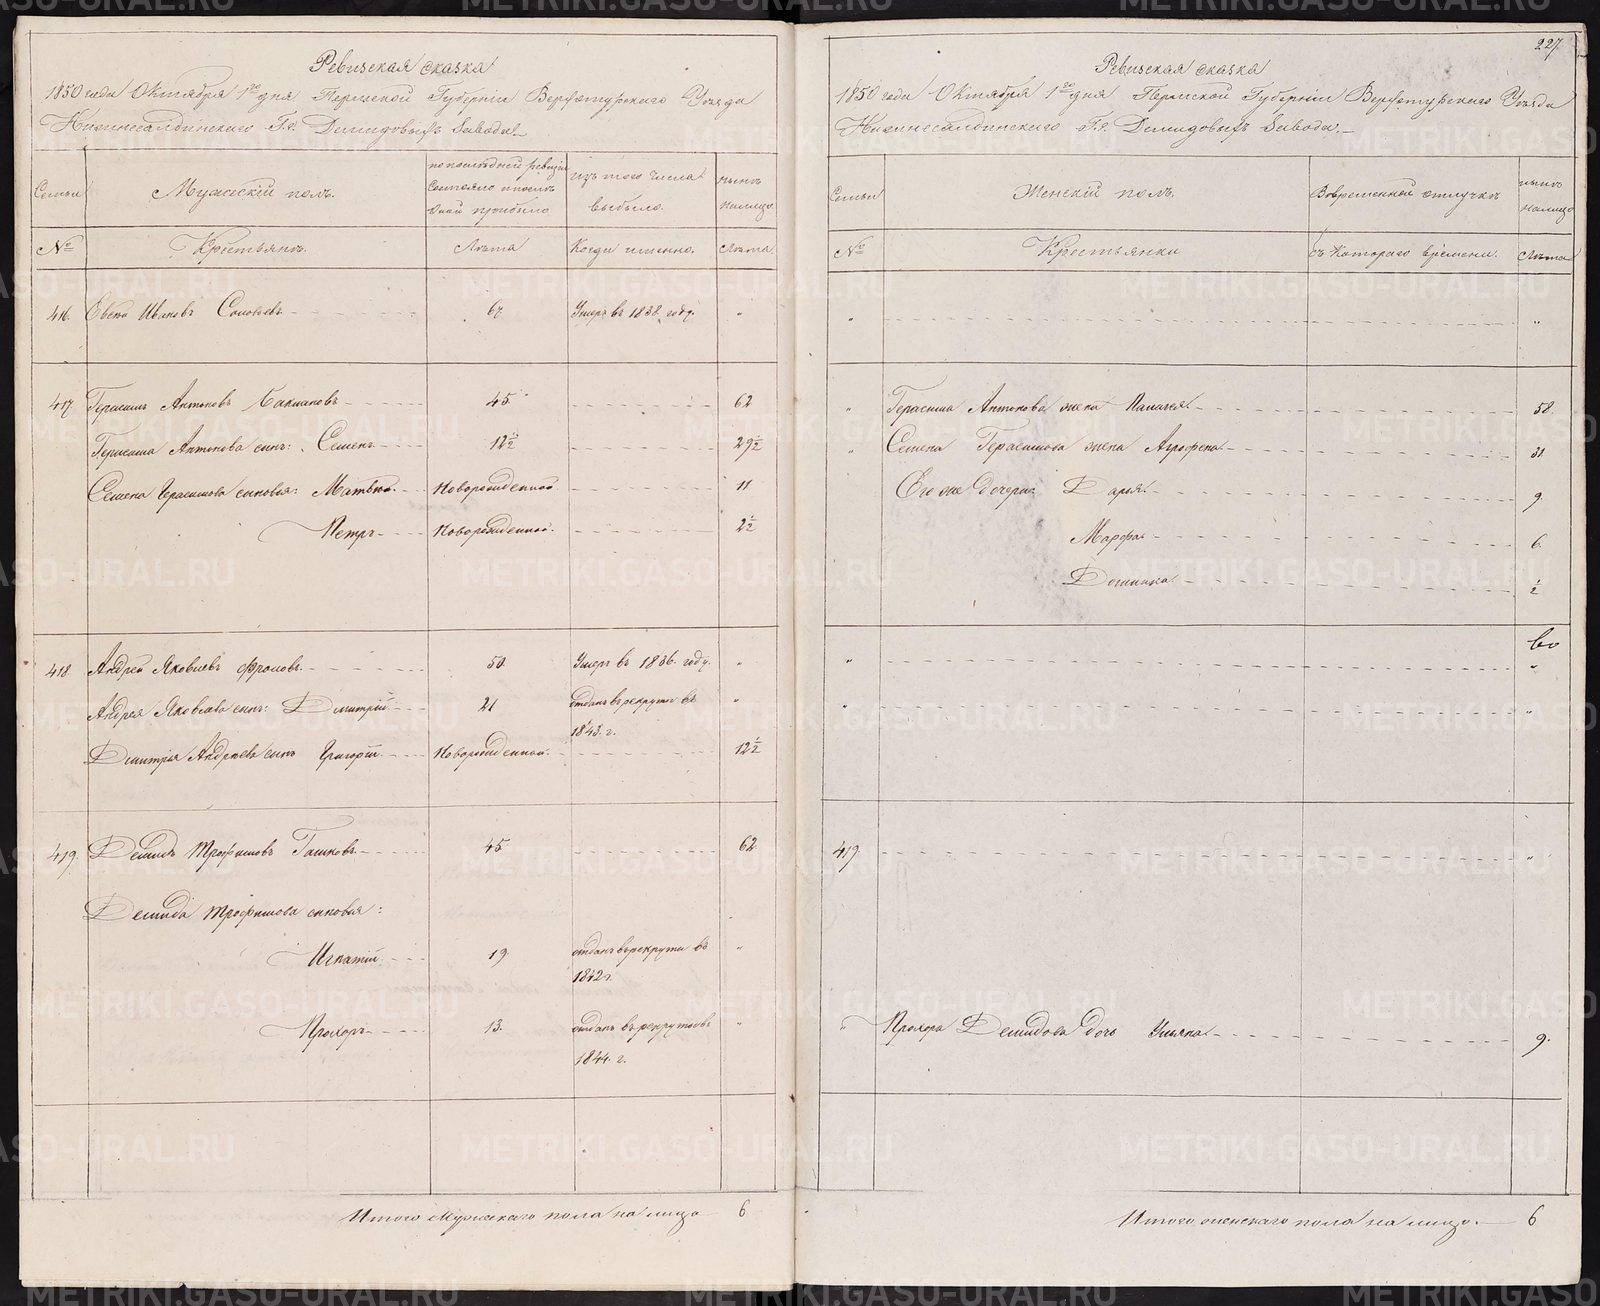 Ревизская сказка
1850 года Октября 1го дня Пермской Губернии Верхотурскаго Уезда
Нижнесалдинскаго Г.г. Демидовыхъ Завода.
Семьи
Мужескій полъ.
по последней ревизіи состояло и после оной прибыло
изъ того числа выбыло.
ныне на лицо.
№
Крестьянъ.
Лета
Когда именно.
Лета.
416. Ивановъ Соловьевъ 67 Умеръ въ 1838 году. "
417. Герасимъ Антоновъ 45. 62
Герасима Антонова сынъ: Семенъ 12½ 29½
Семена Герасимова сыновья: Матвей Новорожденной 11
Петръ Новорожденной. 2½
418. Андрей Яковлевъ Фроловъ 50 Умеръ въ 1836 году. "
Андрея Яковлева сынъ: Дмитрій 21 отданъ въ рекруты въ "
1843. г.
Дмитрія Андреева сынъ Григорій Новорожденной. 12½
419. Демидъ Трофимовъ Гашковъ 45 62
Демида Трофимова сыновья:
Игнатій 19 отданъ въ рекруты въ "
1842 г.
Прохоръ 13. отданъ въ рекруты въ "
1844. г.
Итого Мужескаго пола на лицо 6
227
Ревизская сказка
1850 года Октября 1го дня Пермской Губернии Верхотурскаго Уезда
Нижнесалдинскаго Г.г. Демидовыхъ Завода.
Семьи
Женскій полъ.
Во временной отлучке
ныне на лицо
№
Крестьянки
съ котораго времени.
Лета
" "
" Герасима Антонова жена Палагея 58.
" Семена Герасимова жена Агрофена 31
Его же дочери: Дарья 9.
Марфа 6.
Домника ½
" "
" "
419 "
" Прохора Демидова дочь Ульяна 9.
Итого женскаго пола на лицо. 6
METRIKI.GASO-URAL.RU